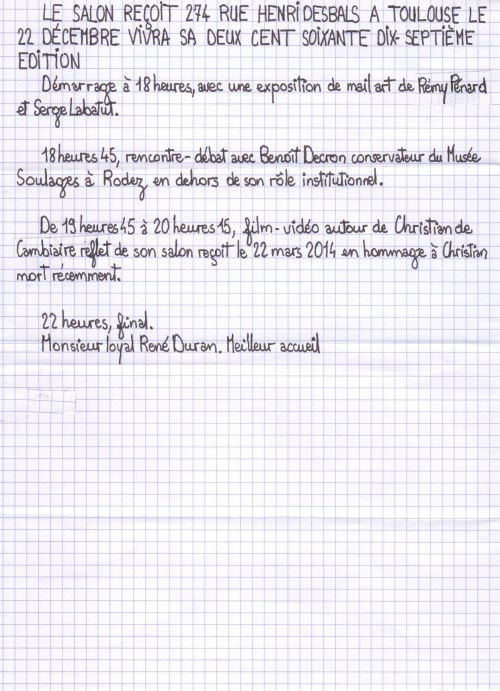 LE SALON REÇOIT 274 RUE HENRI DESBALS A TOULOUSE LE
22 DÉCEMBRE VIVRA SA DEUX CENT SOIXANTE DIX-SEPTIÈME
EDITION
Démarrage à 18 heures, avec une exposition de mail art de Rémy Pénard
et Serge Labatut.
18 heures 45, rencontre-débat avec Benoît Decron conservateur du Musée
Soulages à Rodez, en dehors de son rôle institutionnel.
De 19 heures 45 à 20 heures 15, film-vidéo autour de Christian de
Cambiaire reflet de son salon reçoit le 22 mars 2014 en hommage à Christian
mort récemment.
22 heures, final.
Monsieur loyal René Duran. Meilleur accueil